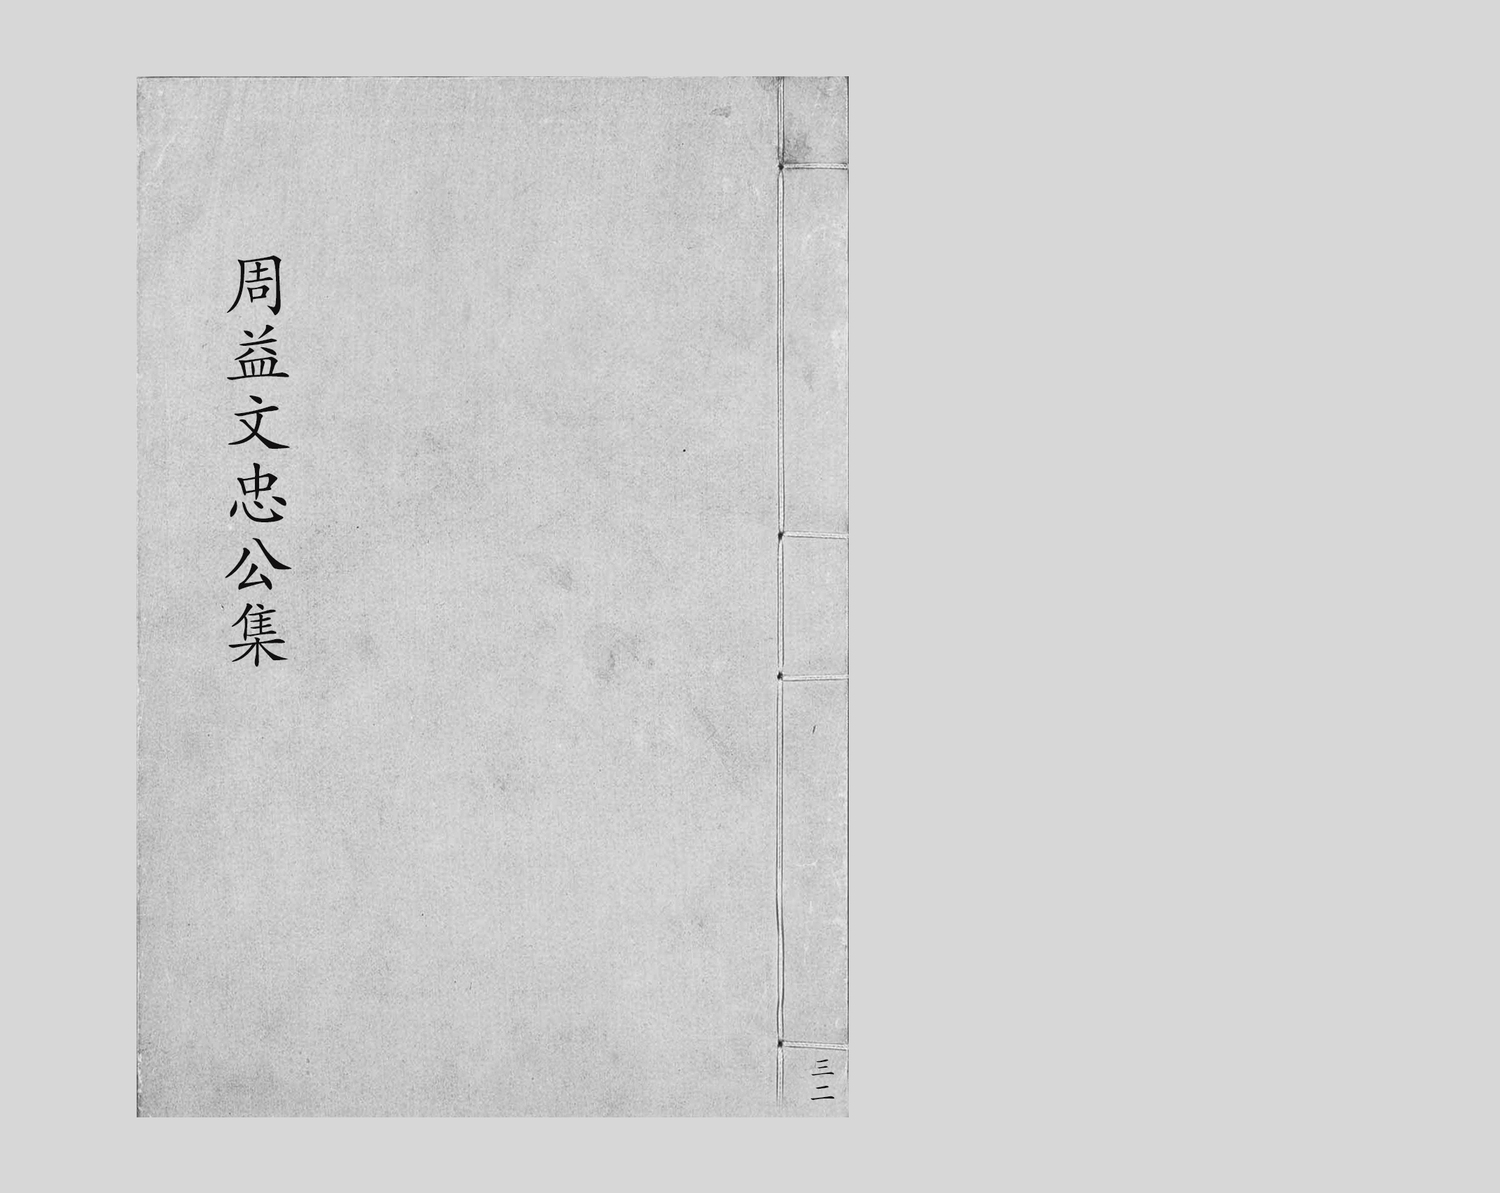 周益文忠公集
三二